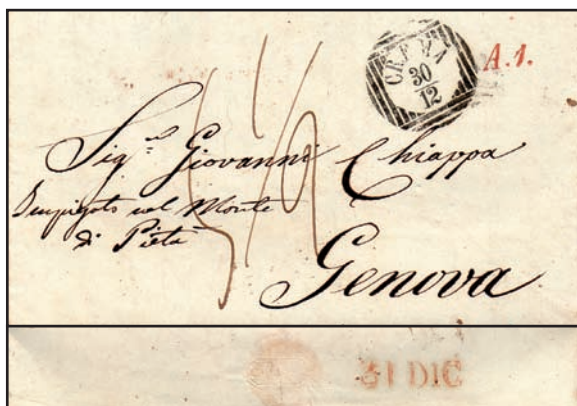 CREMA
30
12
A.1.
Sig.r Giovanni Chiappa
Impiegato nel Monte
di Pietà
Genova
31 DIC